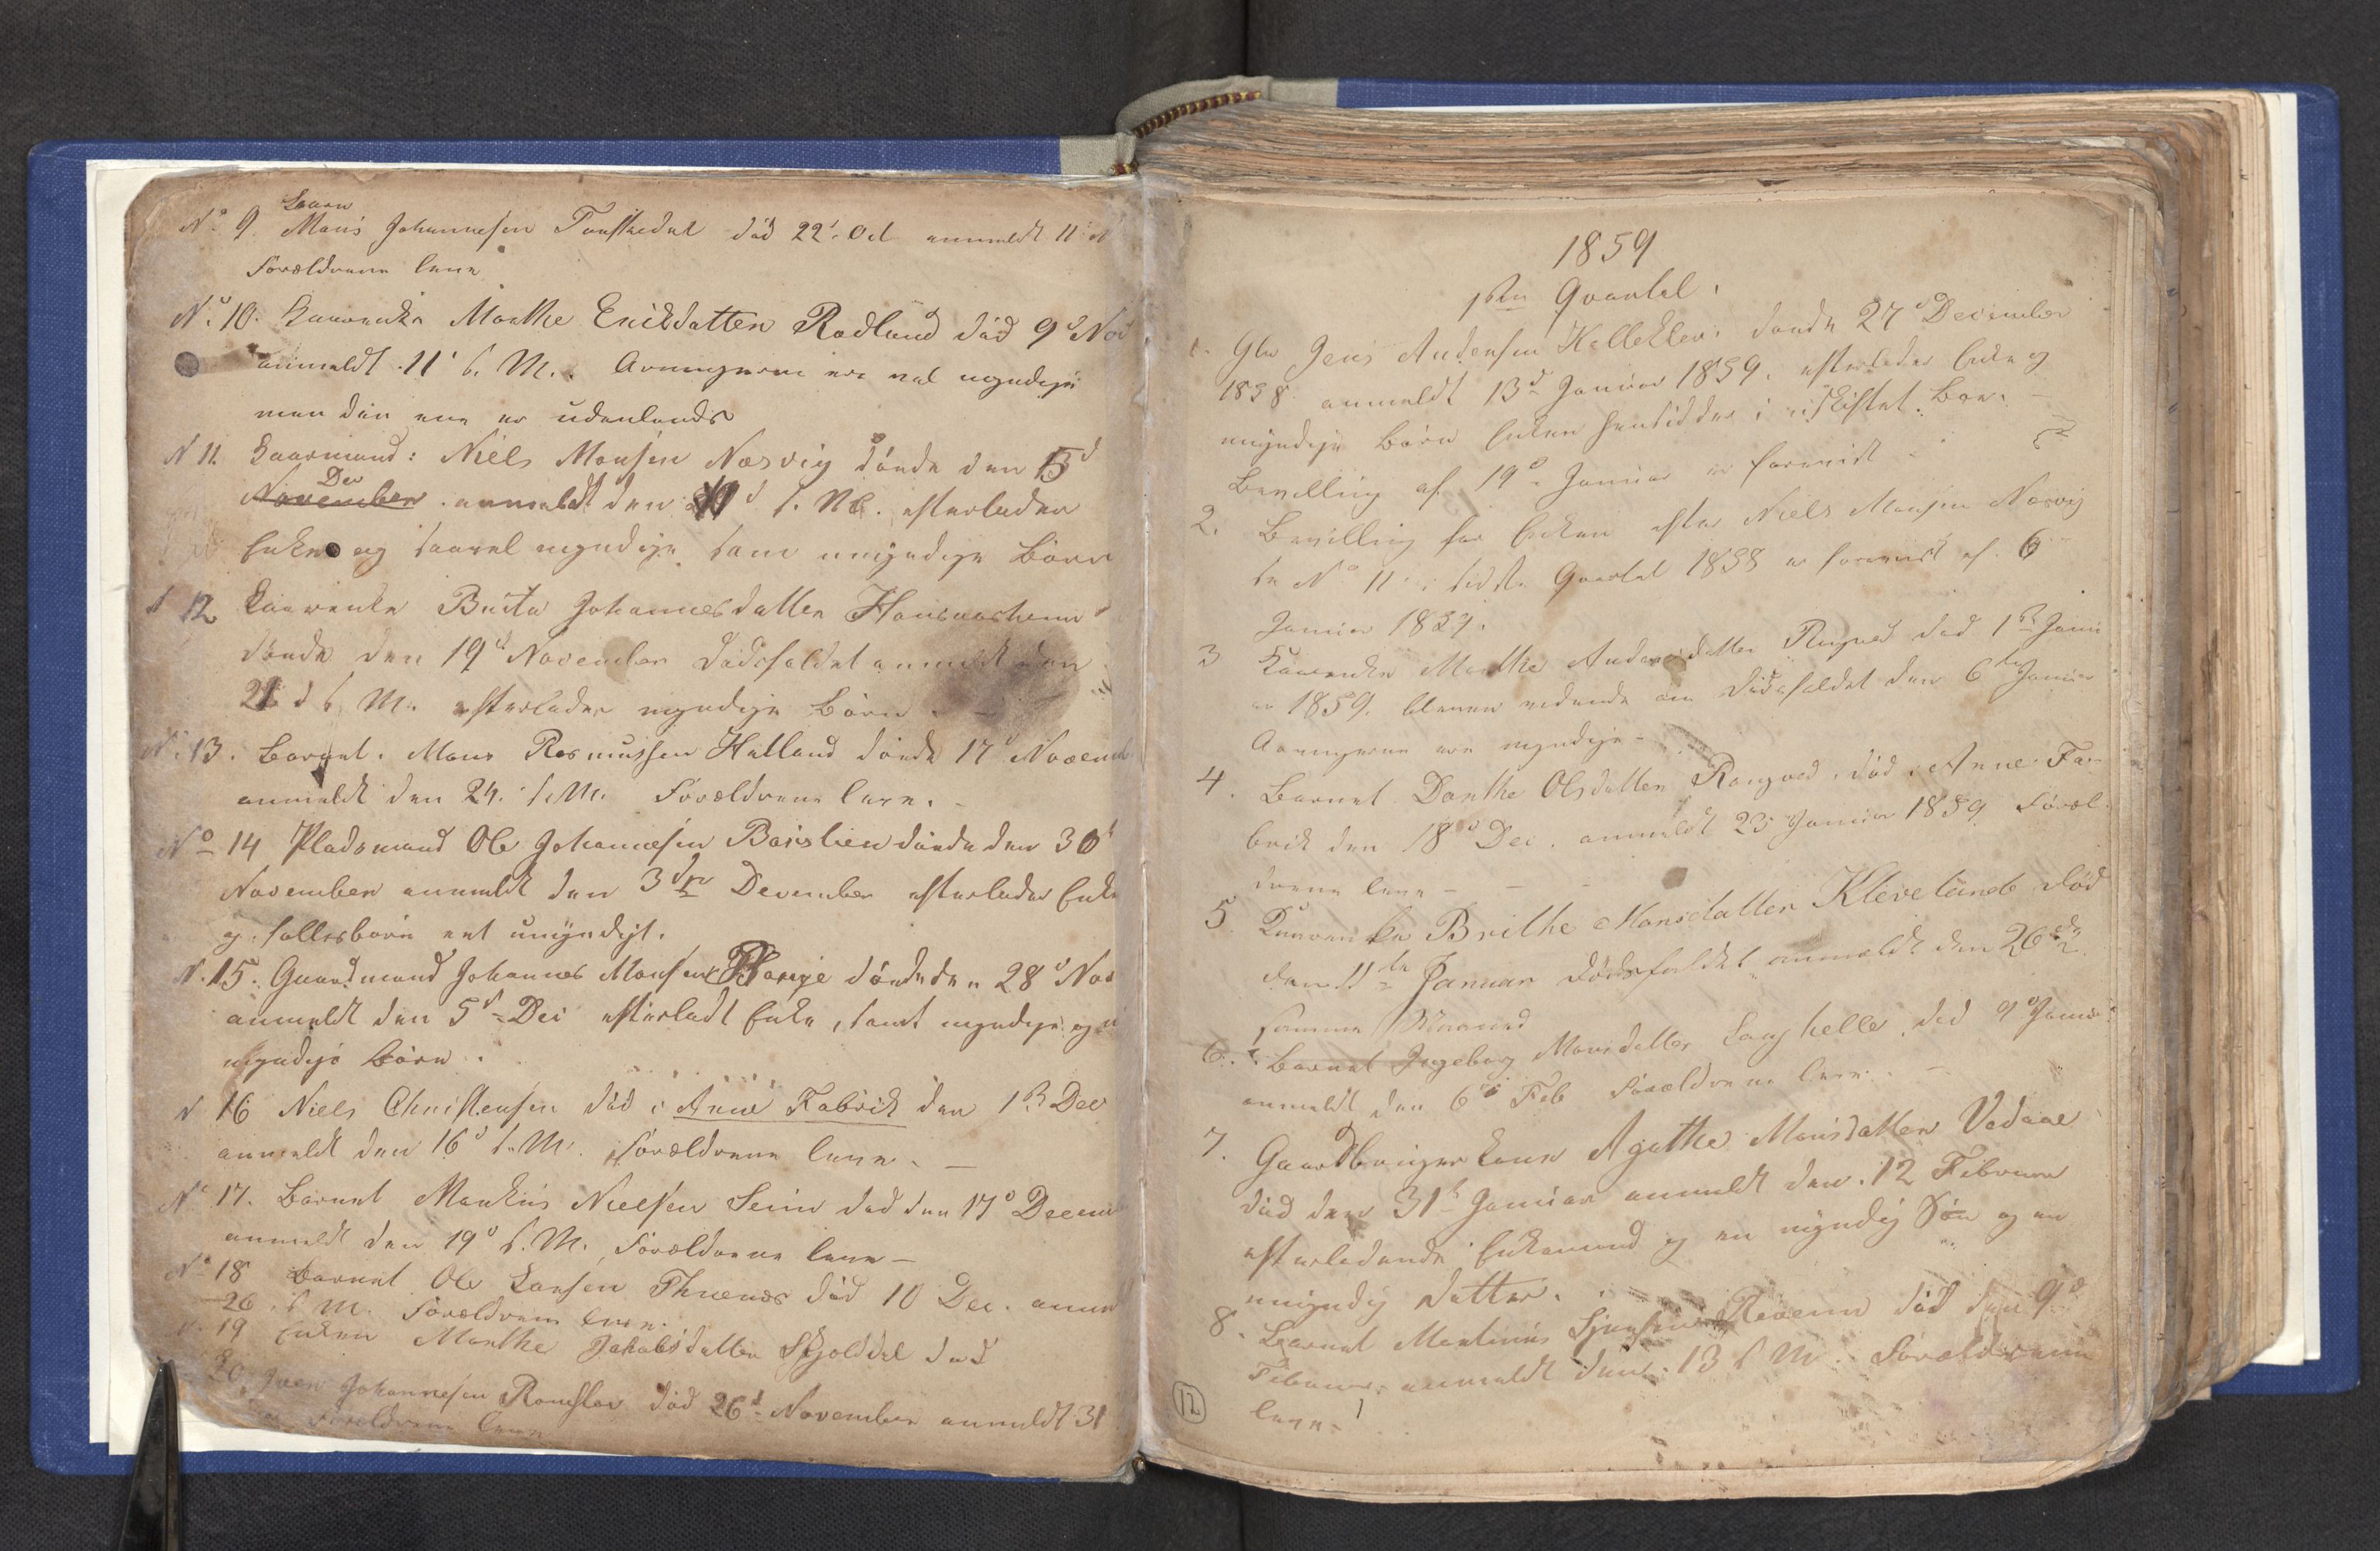 Baarn
No 9. Mons Johannesen Fauskedal död 22d Oct anmeldt 11
Forældrene leve
No 10. Kaarenke Marthe Ericksdatter Rødland död 9d Nov
anmeldt 11 s. M. Arvingerne ere vel myndige
men den ene er udenlands
N 11. Kaarmand: Niels Monsen Næsvig döede den 15d
November Dec anmeldt den d s. M. efterlader
Enke og saavel myndige som umyndige Börn
N 12 Kaarenke Brita Johannesdatter
döede den 19d November Dödsfaldet anmeldt den
21 d s. M. efterlader myndige Börn
No 13. Barnet. Mons Rasmussen Hatland döede 17d Novemb
anmeldt den 24. s. M. Forældrene leve.
No 14 Pladsmand Ole Johannesen döede den 30t
November anmeldt den 3die December efterlader Enke
og fællesbörn eet umyndigt.
N. 15. Gaardmand Johannes Monsen döede den 28d Nov
anmeldt den 5d Dec efterladt Enke, samt myndige og u
myndige Börn.
N 16 Niels Christensen död i Arne Fabrik den 1st Dec
anmeldt den 16d s. M. Forældrene leve. —
No 17. Barnet Markus Nielsen Seim död den 17d Decem
anmeldt den 19d s. M. Forældrene leve —
No 18 Barnet Ole Larsen död 10 Dec. anme
26 s. M. Forældrene leve.
N. 19 Enken Marthe Jakobsdatter Skjoldal död
20 Johannesen Romslo död 26d November anmeldt 31
Forældrene leve
1859
1ste Qvartal.
1. Gbr Jens Andersen Helleklev döede 27d December
1858 anmeldt 13d Januar 1859. efterlader Enke og
myndige Börn Enken hensidder i uskiftet Boe.
Bevilling af 19d Januar er foreviist
2. Bevilling for Enken efter Niels Monsen Næsvig
se No 11 i sidste Qvartal 1858 er foreviist af 6
Januar 1859.
3 Kaarenke Marthe Andersdatter död 1st Janu
ar 1859. bleven vidende om Dödsfaldet den 6te Januar
Arvingerne ere myndige -
4. Barnet Dorthe Olsdatter död i Arne Fa-
brik den 18d Dec. anmeldt 23 Januar 1859 Foræl-
drene leve - — -
5 Kaarenke Brithe Monsdatter Kleveland Död
den 11te Januar Dödsfaldet anmeldt den 26de
samme Maaned
6. Barnet Ingeborg Monsdatter Langhelle död 9d Januar
anmeldt den 6d Feb Forældrene leve. —
7. Gaardbrugerkone Agathe Monsdatter Vedaae
död den 31t Januar anmeldt den 12 Februar
efterladende Enkemand og en myndig Sön og en
umyndig datter.
8. Barnet Martinus död den 9d
Februar anmeldt den 13 s M. Forældrene
leve.
12